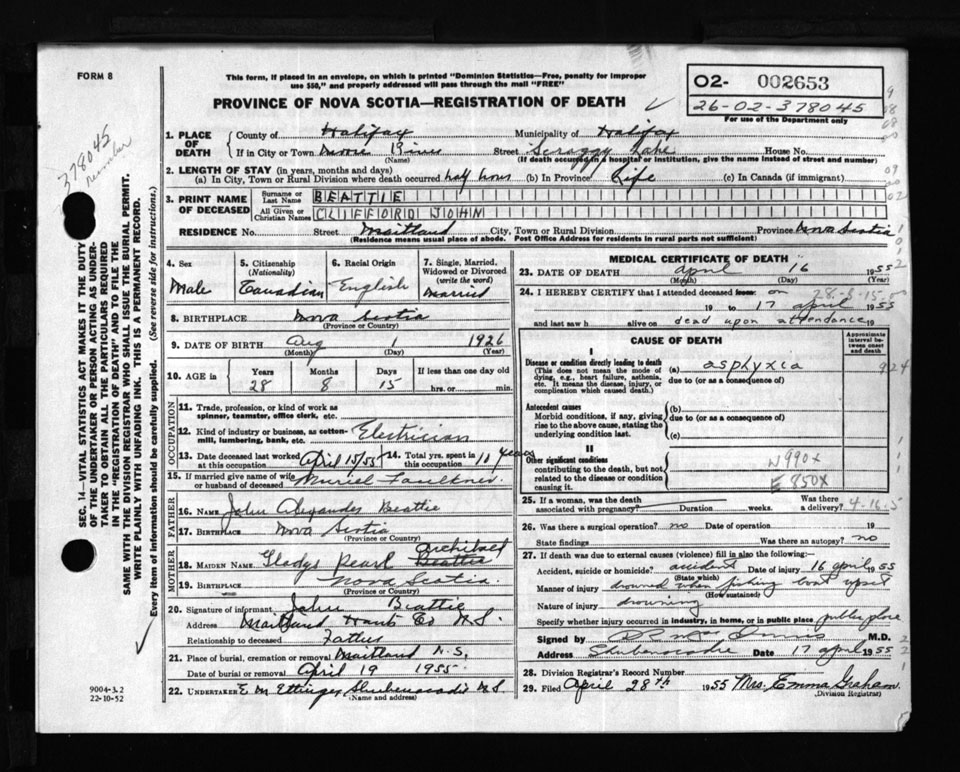 FORM 8
This form, if placed in an envelope, on which is printed "Dominion Statistics—Free, penalty for improper
use $50," and properly addressed will pass through the mail "FREE"
PROVINCE OF NOVA SCOTIA—REGISTRATION OF DEATH
02- 002653
26-02-378045
For use of the Department only
378045
November
SEC. 14—VITAL STATISTICS ACT MAKES IT THE DUTY
OF THE UNDERTAKER OR PERSON ACTING AS UNDER-
TAKER TO OBTAIN ALL THE PARTICULARS REQUIRED
IN THE "REGISTRATION OF DEATH" AND TO FILE THE
SAME WITH THE DIVISION REGISTRAR WHO SHALL ISSUE THE BURIAL PERMIT.
WRITE PLAINLY WITH UNFADING INK. THIS IS A PERMANENT RECORD.
Every item of information should be carefully supplied. (See reverse side for instructions.)
1. PLACE OF DEATH
County of Halifax Municipality of Halifax
If in City or Town Street Scraggy Lake House No.
(Name) (If death occurred in a hospital or institution, give the name instead of street and number)
2. LENGTH OF STAY (in years, months and days)
(a) In City, Town or Rural Division where death occurred half hour (b) In Province Life (c) In Canada (if immigrant)
3. PRINT NAME OF DECEASED
Surname or Last Name BEATTIE
All Given or Christian Names CLIFFORD JOHN
RESIDENCE No. Street Maitland City, Town or Rural Division Province Nova Scotia
(Residence means usual place of abode. Post Office Address for residents in rural parts not sufficient)
4. Sex
Male
5. Citizenship (Nationality)
Canadian
6. Racial Origin
English
7. Single, Married, Widowed or Divorced (write the word)
Married
8. BIRTHPLACE Nova Scotia
(Province or Country)
9. DATE OF BIRTH Aug 1 1926
(Month) (Day) (Year)
10. AGE in Years Months Days If less than one day old
28 8 15 hrs. or min.
OCCUPATION
11. Trade, profession, or kind of work as spinner, teamster, office clerk, etc.
12. Kind of industry or business, as cotton-mill, lumbering, bank, etc. Electrician
13. Date deceased last worked at this occupation April 15/55
14. Total yrs. spent in this occupation 10 years
15. If married give name of wife or husband of deceased Muriel Faulkner
FATHER
16. NAME John Alexander Beattie
17. BIRTHPLACE Nova Scotia
(Province or Country)
MOTHER
18. MAIDEN NAME Gladys Pearl Archibald Beattie
19. BIRTHPLACE Nova Scotia
(Province or Country)
20. Signature of informant John Beattie
Address Maitland Hants Co N.S.
Relationship to deceased Father
21. Place of burial, cremation or removal Maitland N.S.
Date of burial or removal April 19 1955
22. UNDERTAKER E. M. Ettinger Shubenacadie N.S.
(Name and address)
9004-3.2
22-10-52
MEDICAL CERTIFICATE OF DEATH
23. DATE OF DEATH April 16 1955
(Month) (Day)
24. I HEREBY CERTIFY that I attended deceased from on
28-8-15
19 to 17 April 1955
and last saw h alive on dead upon attendance 19
CAUSE OF DEATH
Approximate interval between onset and death
I
Disease or condition directly leading to death
(This does not mean the mode of dying, e.g., heart failure, asthenia, etc. It means the disease, injury, or complication which caused death.)
(a) asphyxia
due to (or as a consequence of)
924
Antecedent causes
Morbid conditions, if any, giving rise to the above cause, stating the underlying condition last.
(b)
due to (or as a consequence of)
(c)
II
Other significant conditions
contributing to the death, but not related to the disease or condition causing it.
N990X
E850X
25. If a woman, was the death associated with pregnancy? Duration weeks. Was there a delivery?
4-16-5
26. Was there a surgical operation? no Date of operation 19
State findings Was there an autopsy? no
27. If death was due to external causes (violence) fill in also the following:—
Accident, suicide or homicide? accident Date of injury 16 april 1955
(State which)
Manner of injury drowned when fishing boat upset
(How sustained)
Nature of injury drowning
Specify whether injury occurred in industry, in home, or in public place public place
Signed by M.D.
Address Shubenacadie Date 17 april 1955
28. Division Registrar's Record Number
29. Filed April 28th 1955 Mrs. Emma Graham
(Division Registrar)